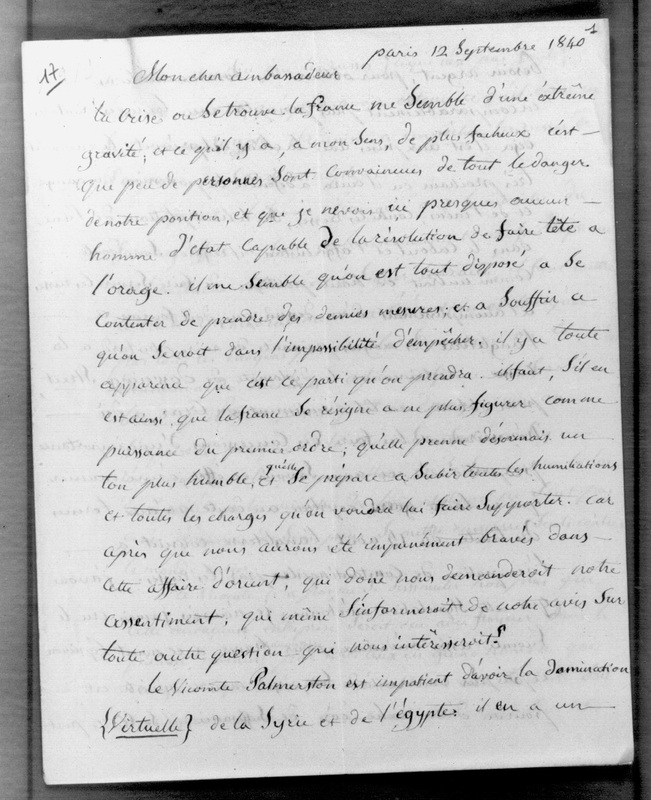 paris 12 Septembre 1840 1
17
Mon cher ambassadeur
la Crise ou Se trouve la france me Semble d'une extrême
gravité; et ce qu'il y a, a mon Sens, de plus facheux c'est —
que peu de personnes Sont Convaincues de tout le danger
de notre position, et que je ne vois ici presques aucun —
homme d'état Capable de la résolution de faire tête a
l'orage. il me Semble qu'on est tout disposé, a Se
Contenter de prendre des demies mesures; et a Souffrir ce
qu'on Se croit dans l'impossibilité d'empêcher. il y a toute
apparence que c'est ce parti qu'on prendra. il faut, S'il en
est ainsi, que la france Se résigne a ne plus figurer comme
puissance du premier ordre; qu'elle prenne désormais un
ton plus humble, et qu'elle Se prépare a Subir toutes les humiliations
et toutes les charges qu'on voudra lui faire Supporter. Car
après que nous aurons été impunément bravés dans —
Cette affaire d'orient; qui donc nous demanderoit notre
assentiment, qui même S'informeroit de notre avis Sur
toute autre question qui nous intéresseroit?
le Vicomte Palmerston est impatient d'avoir la domination
{Virtuelle} de la Syrie et de l'égypte. il en a un —